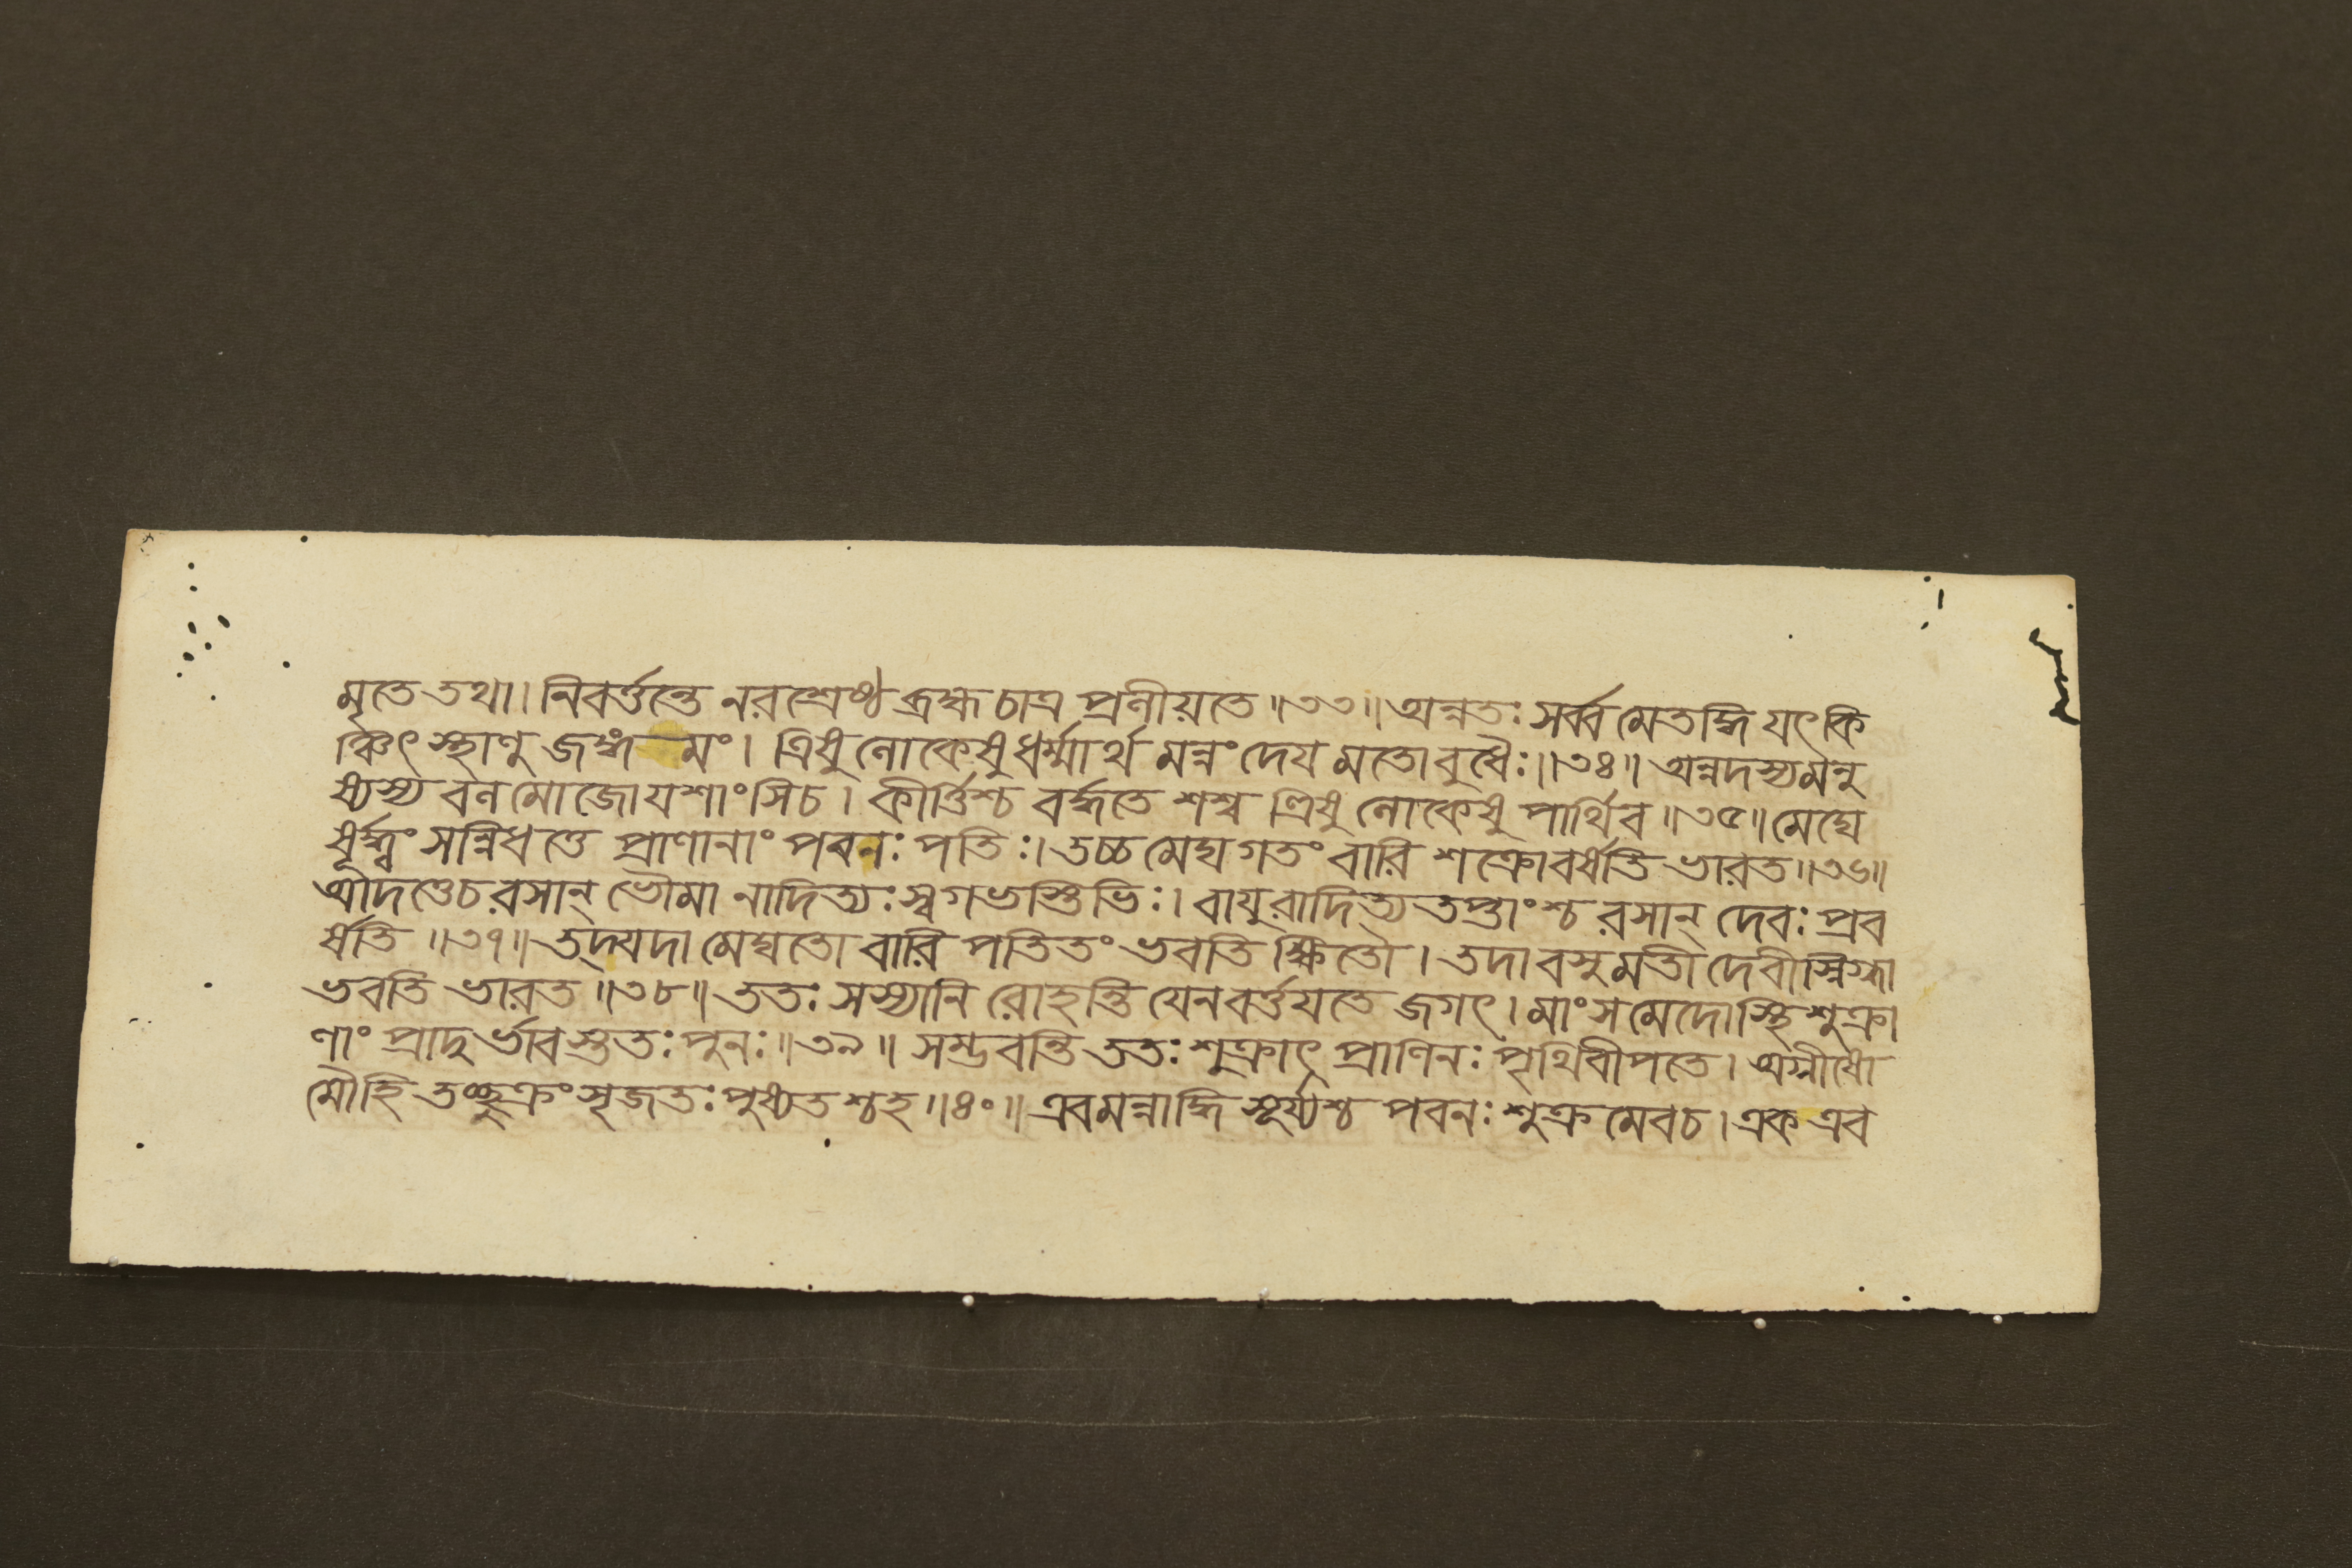 মৃতে তথা। নিবর্ত্তন্তে নরশ্রেষ্ঠ ব্রহ্ম চাত্র প্রলীয়তে॥৩৩॥ অন্নতঃ সর্ব্ব মেতদ্ধি যৎ কি
ঞ্চিৎ স্থাণু জঙ্গ মং। ত্রিষু লোকেষু ধর্ম্মার্থ মন্নং দেয মতো বুধৈঃ॥৩৪॥ অন্নদস্য মনু
ষ্যস্য বল মোজো যশাংসি চ। কীর্ত্তিশ্চ বর্দ্ধতে শশ্ব ত্ত্রিষু লোকেষু পার্থিব॥৩৫॥ মেঘে
ষূর্দ্ধ্বং সন্নিধত্তে প্রাণানাং পবনঃ পতিঃ। তচ্চ মেঘ গতং বারি শক্রো বর্ষতি ভারত॥৩৬॥
আদত্তে চ রসান্ ভৌমা নাদিত্যঃ স্বগভস্তিভিঃ। বাযুরাদিত্য তপ্তাংশ্চ রসান্ দেবঃ প্রব
র্ষতি॥৩৭॥ তদ্যদা মেঘতো বারি পতিতং ভবতি ক্ষিতৌ। তদা বসুমতী দেবী স্নিগ্ধা
ভবতি ভারত॥৩৮॥ ততঃ সস্যানি রোহন্তি যেন বর্ত্তযতে জগৎ। মাংস মেদোস্থি শুক্রা
ণাং প্রাদু র্ভাব স্ততঃ পুনঃ॥৩৯॥ সম্ভবন্তি ততঃ শুক্রাৎ প্রাণিনঃ পৃথিবীপতে। অগ্নীষো
মৌ হি তচ্ছুক্রং সৃজতঃ পুষ্যতশ্চ হ॥৪০॥ এবমন্নাদ্ধি সূর্য্যশ্চ পবনঃ শুক্র মেব চ। এক এব